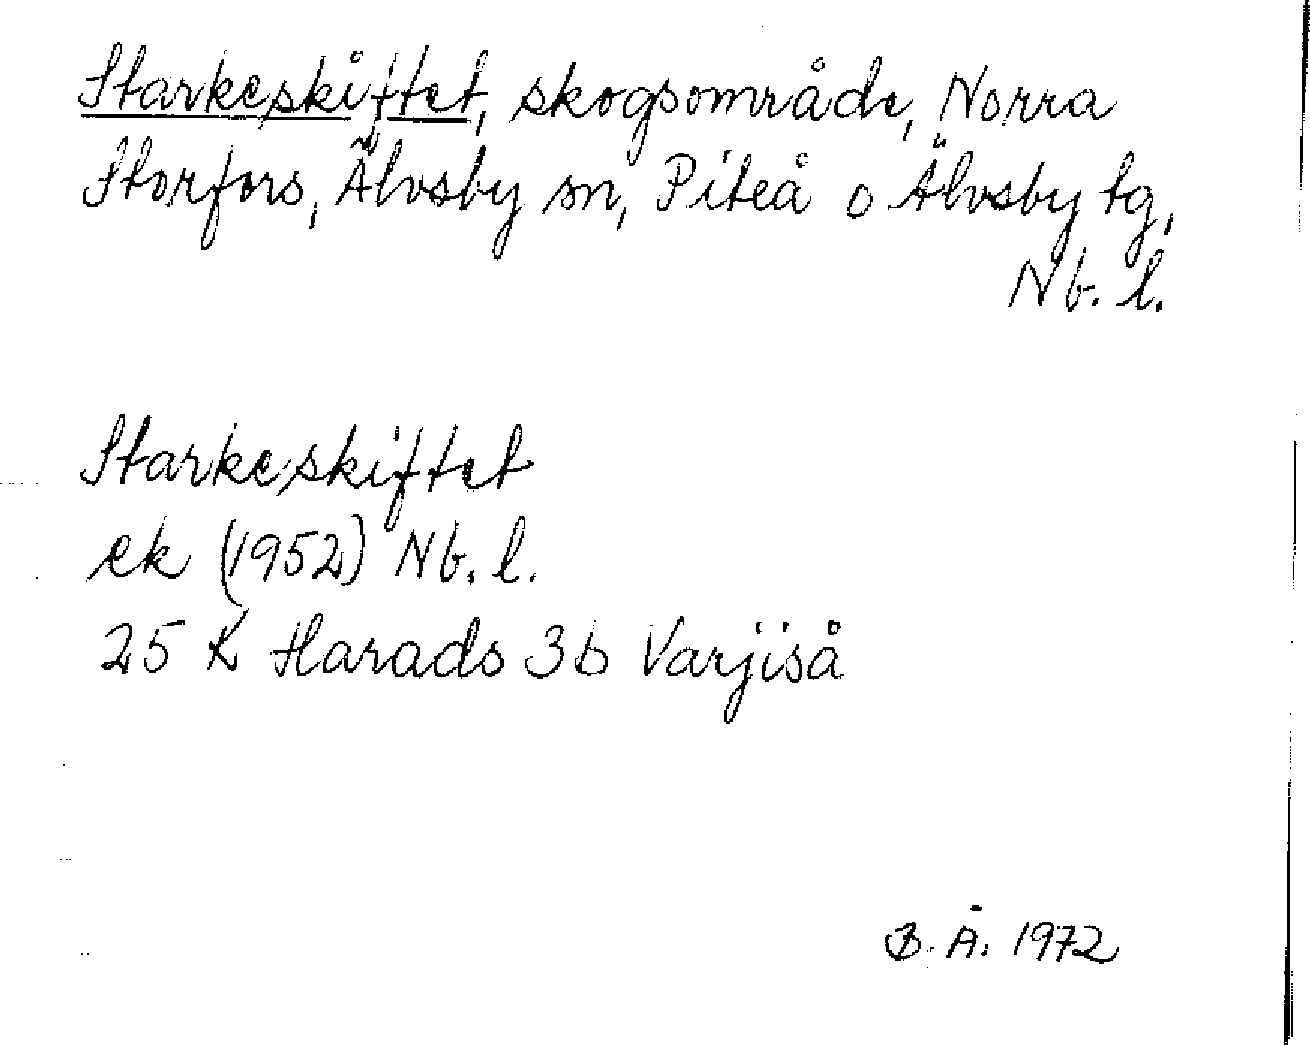 Starkeskiftet, skogsområde, Norra
Storfors, Älvsby sn, Piteå o Älvsby tg,
Nb. l.
Starkeskiftet
ek (1952) Nb. l.
25 K Harads 3b Varjiså
B. Å. 1972